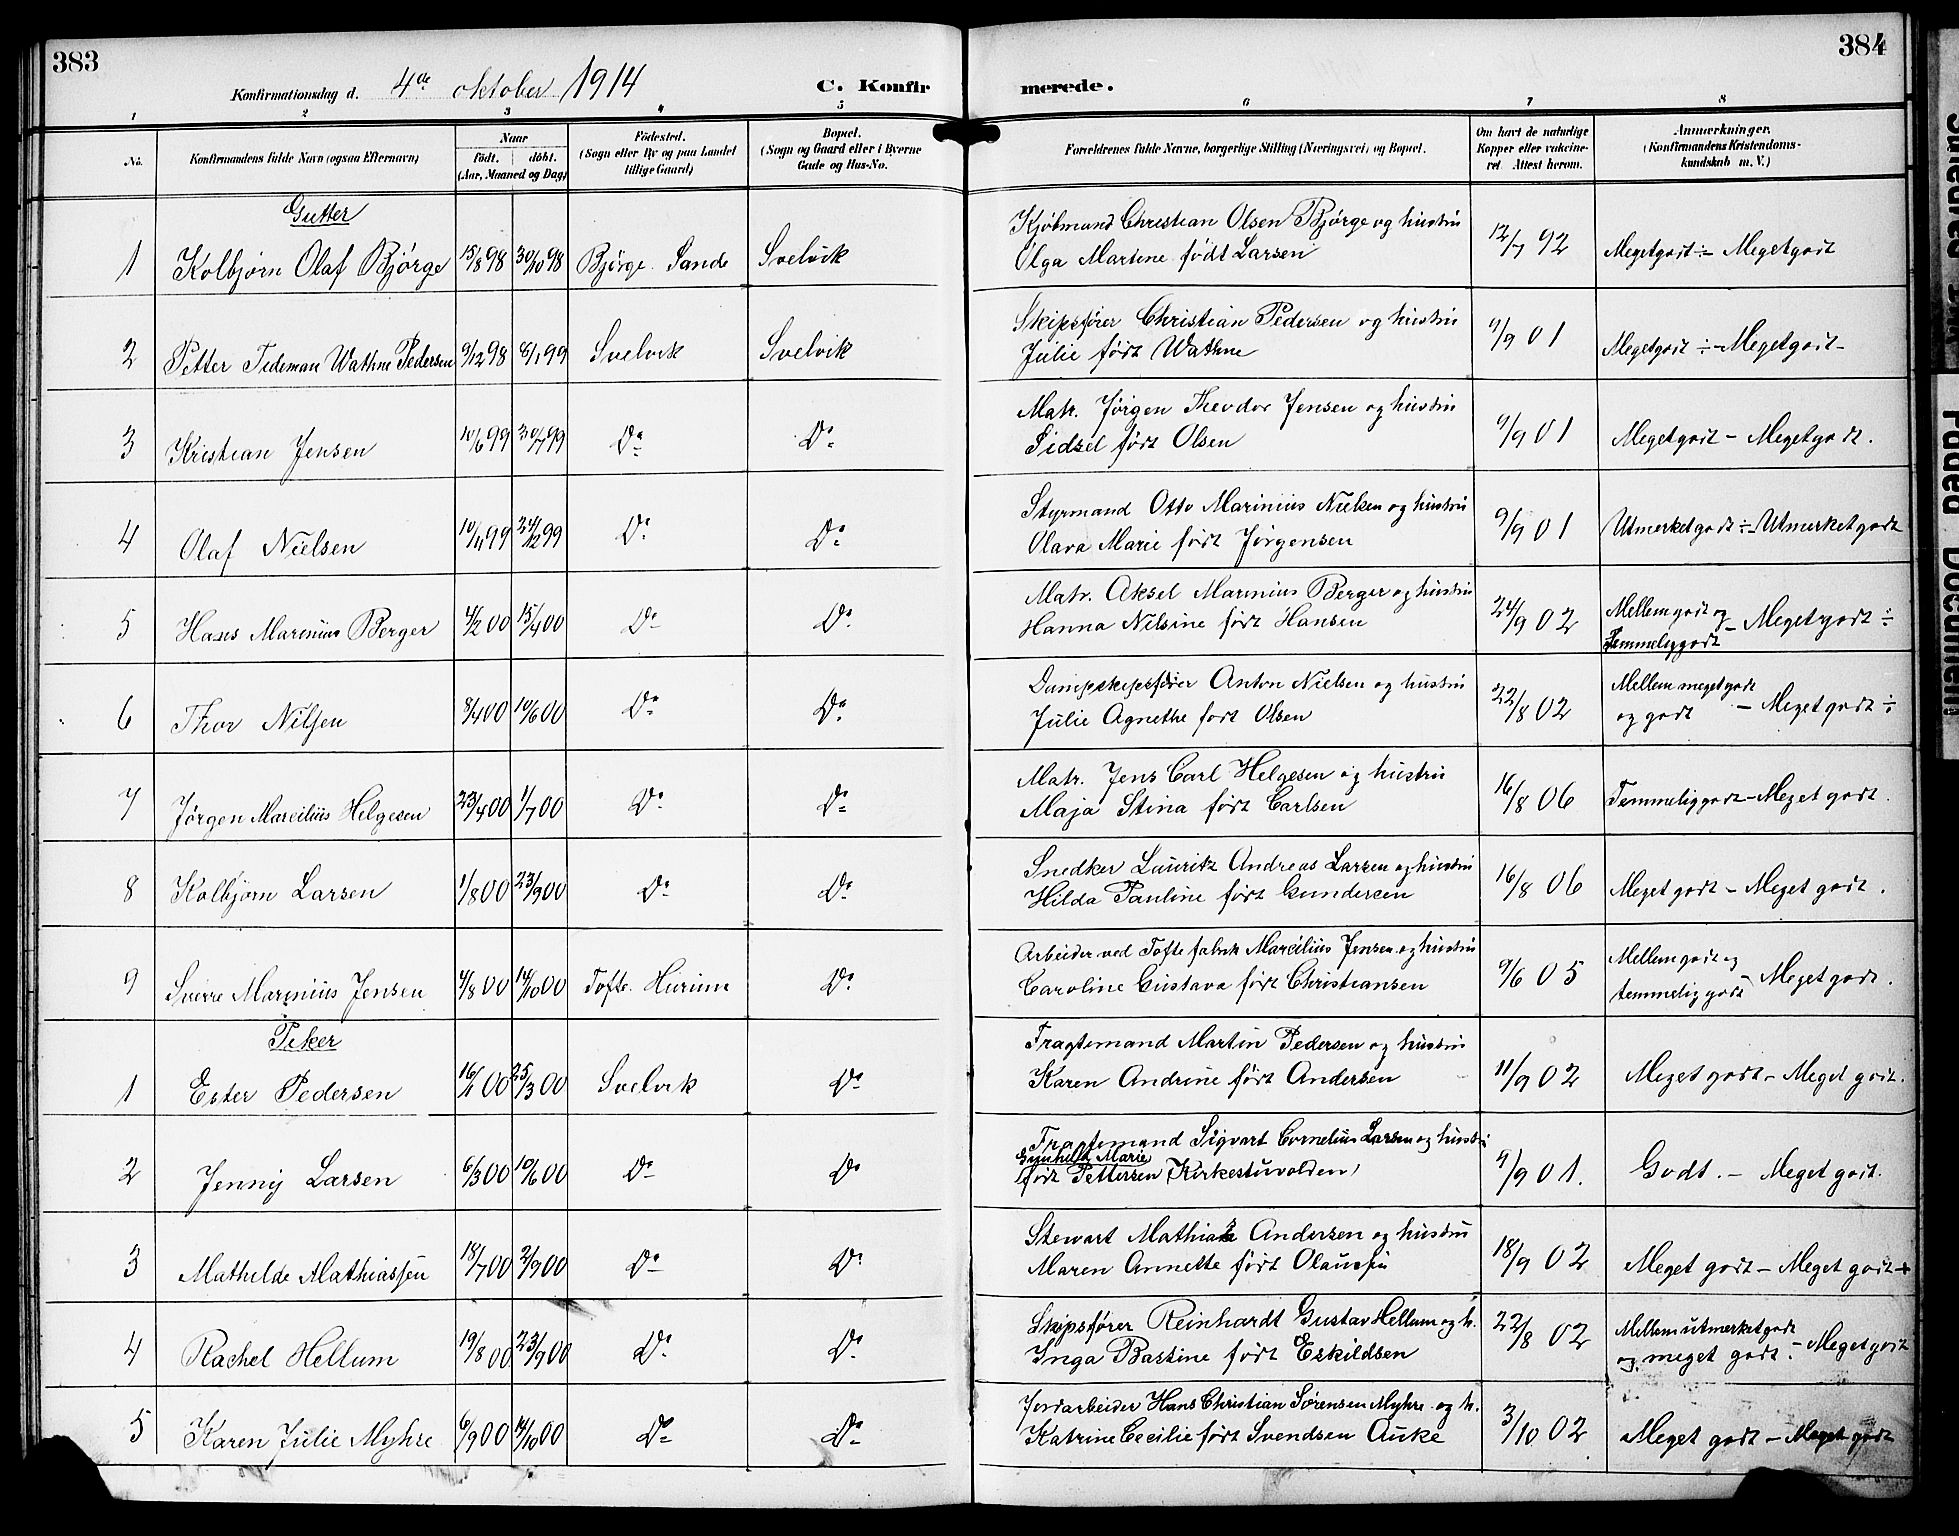 383
384
Konfirmationsdag d. 4de oktober 1914
C. Konfirmerede.
1 2 3 4 5 6 7 8
No.
Konfirmandens fulde Navn (ogsaa Efternavn)
Naar
födt. döbt.
(Aar, Maaned og Dag)
Födested.
(Sogn eller By og paa Landet
tillige Gaard)
Bopæl.
(Sogn og Gaard eller i Byerne
Gade og Hus-No.
Forældrenes fulde Navne, borgerlige Stilling (Næringsvei) og Bopæl.
Om havt de naturlige
Kopper eller vakcine-
ret Attest herom.
Anmærkninger.
(Konfirmandens Kristendoms-
kundskab m. V.)
Gutter
1 Kolbjørn Olaf Bjørge 15/8 98 30/10 98 Bjørge. Sande Svelvik
Kjøbmand Christian Olsen Bjørge og hustru
Olga Martine født Larsen 12/7 92 Megetgodt ÷ Megetgodt
2 Petter Tideman Wathne Pedersen 9/12 98 8/1 99 Svelvik Svelvik
Skipsfører Christian Pedersen og hustru
Julie født Wathne 9/9 01 Megetgodt ÷ Megetgodt
3 Kristian Jensen 10/6 99 30/7 99 Do Do
Matr. Jörgen Theodor Jensen og hustru
Sidsel født Olsen 9/9 01 Megetgodt - Megetgodt.
4 Olaf Nielsen 10/11 99 24/12 99 Do Do
Styrmand Otto Marinius Nielsen og hustru
Olava Marie født Jørgensen 9/9 01 Utmerketgodt ÷ Utmerketgodt
5 Hans Marinius Berger 4/2 00 15/4 00 Do Do
Matr. Aksel Marinius Berger og hustru
Hanna Nilsine født Hansen 24/9 02 Mellem godt og
temmeliggodt - Megetgodt ÷
6 Thor Nilsen 8/4 00 10/6 00 Do Do
Dampskipsfører Anton Nielsen og hustru
Julie Agnethe født Olsen 22/8 02 Mellem megetgodt
og godt - Megetgodt ÷
7 Jørgen Marcilius Helgesen 23/4 00 1/7 00 Do Do
Matr. Jens Carl Helgesen og hustru
Maja Stina født Carlsen 16/8 06 Temmeliggodt - Megetgodt.
8 Kolbjørn Larsen 1/8 00 23/9 00 Do Do
Snedker Lauritz Andreas Larsen og hustru
Hilda Pauline født Gundersen 16/8 06 Megetgodt - Megetgodt.
9 Sverre Marinius Jensen 4/8 00 14/10 00 Tofte. Hurum Do
Arbeider ved Tofte fabrik Marcilius Jensen og hustru
Caroline Gustava født Christiansen 9/6 05 Mellem godt og
temmelig godt - Megetgodt.
Piker
1 Ester Pedersen 16/1 00 25/3 00 Svelvik Do
Fragtemand Martin Pedersen og hustru
Karen Andrine født Andersen 11/9 02 Meget godt - Meget godt.
2 Jenny Larsen 6/3 00 10/6 00 Do Do
Fragtemand Sigvart Cornelius Larsen og hustru
Gunhild Marie
født Pettersen (Kirkestuvolden) 4/9 01. Godt. - Meget godt.
3 Mathilde Mathiassen 18/7 00 2/9 00 Do Do
Stewart Mathias Andersen og hustru
Maren Annette født Olaussen 18/9 02 Meget godt - Meget godt +
4 Rachel Hellum 19/8 00 23/9 00 Do Do
Skipsfører Reinhardt Gustav Hellum og h.
Inga Bastine født Eskildsen 22/8 02 Mellem utmerketgodt
og meget godt. - Megetgodt
5 Karen Julie Myhre 6/9 00 14/10 00 Do Do
Jordarbeider Hans Christian Sørensen Myhre og h.
Katrine Cecilie født Svendsen Auke 3/10 02 Meget godt - Meget godt
Faded Document